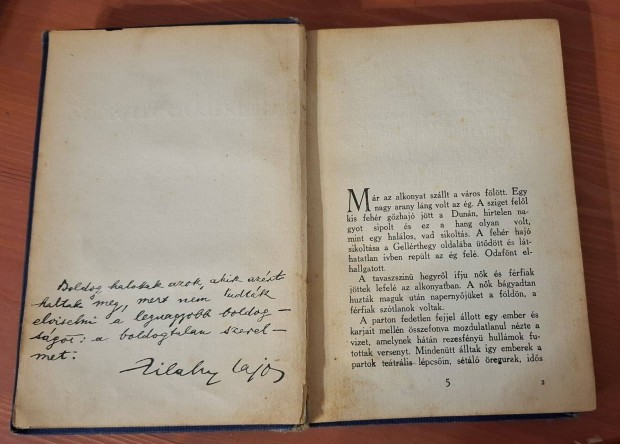 Boldog halottak azok, akik azért
haltak meg, mert nem tudták
elviselni a legnagyobb boldog-
ságot: a boldogtalan szerel-
met.
Zilahy Lajos
Már az alkonyat szállt a város fölött. Egy
nagy arany láng volt az ég. A sziget felől
kis fehér gőzhajó jött a Dunán, hirtelen na-
gyot sipolt és ez a hang olyan volt,
mint egy halálos, vad sikoltás. A fehér hajó
sikoltása a Gellérthegy oldalába ütődött és lát-
hatatlan ivben repült az ég felé. Odafönt el-
hallgatott.
A tavaszszinü hegyről ifju nők és férfiak
jöttek lefelé az alkonyatban. A nők bágyadtan
huzták maguk után napernyőjüket a földön, a
férfiak szótlanok voltak.
A parton fedetlen fejjel állott egy ember és
karjait mellén összefonva mozdulatlanul nézte a
vizet, amelynek hátán rezesfényü hullámok fu-
tottak versenyt. Mindenütt álltak igy emberek a
partok teátrális lépcsőin, sétáló öregurak, idős
5
2